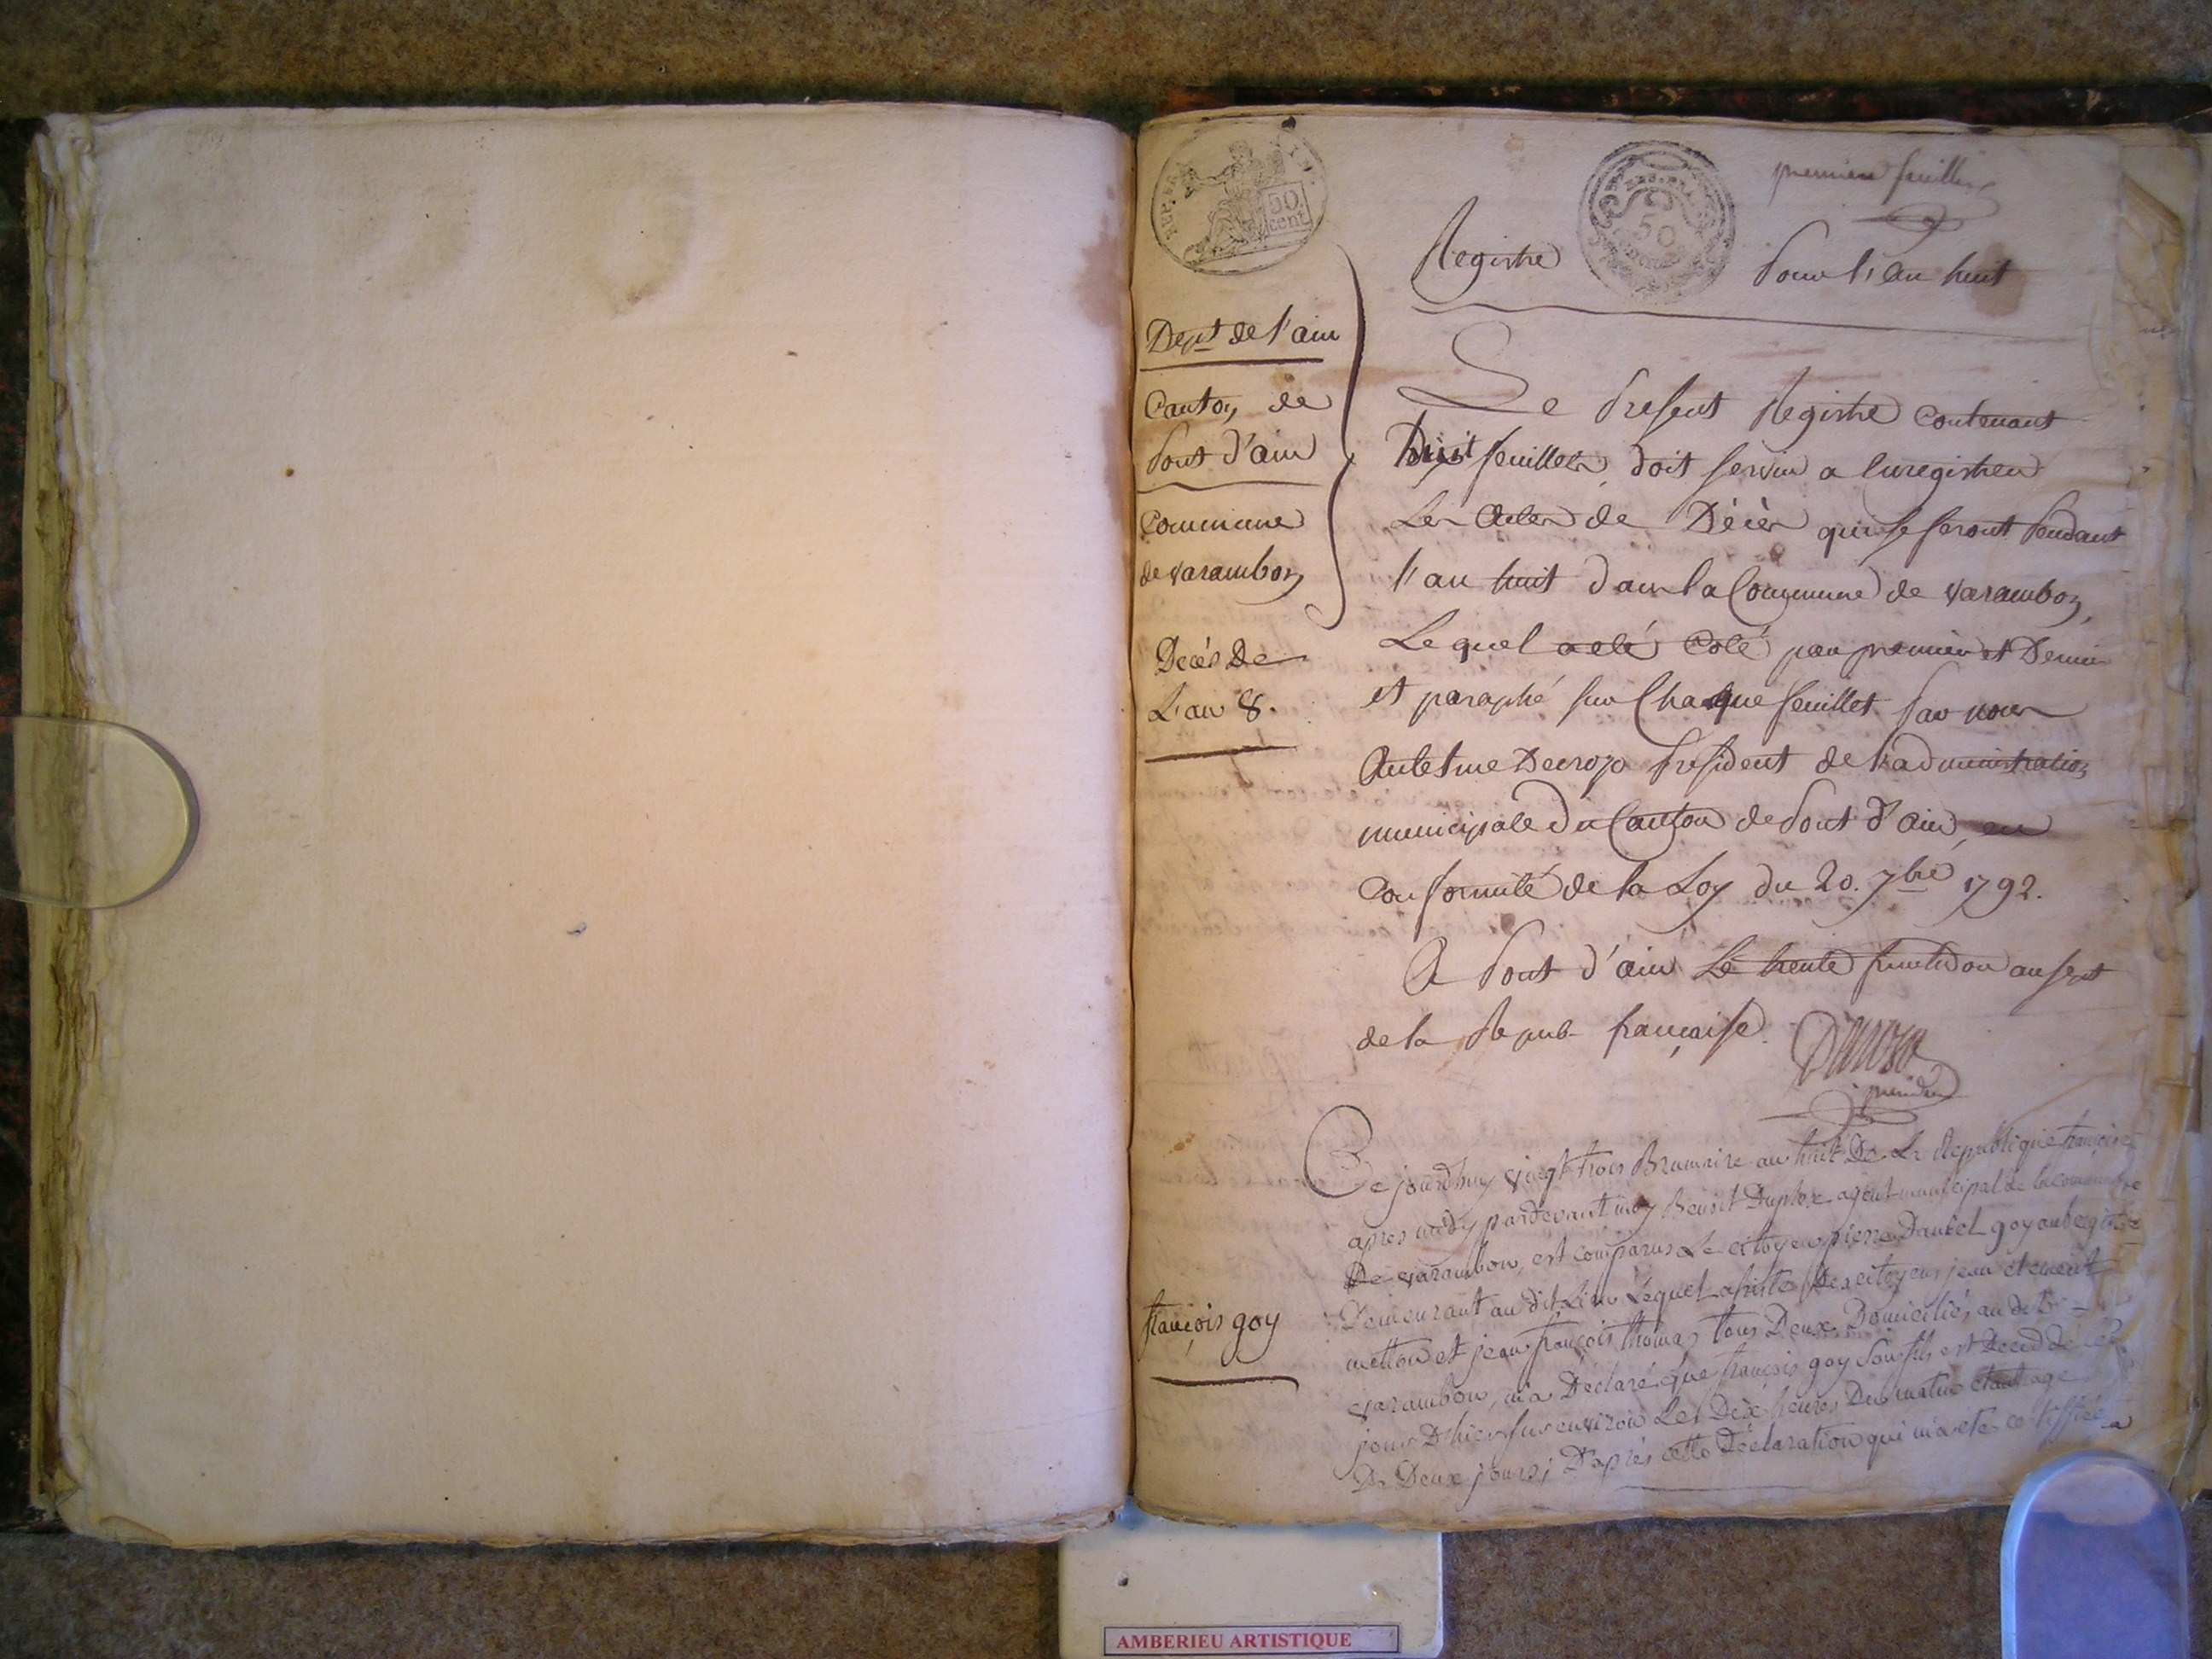 premier feuillet
REP. FRA
50
cent
50
Registre Pour l'an huit
Dept de l'ain
Canton de
Pont d'ain
Commune
de varambon
Décés De
L'an 8.
Le Present Registre contenant
huit feuillets, doit servir a enregistrer
Les Actes de Décès qui se feront Pendant
l'an huit dans la Commune de varambon,
Lequel a eté Coté par premier et Dernier
et paraphé sur Chaque feuillet Par nous
Antelme Decrozo President de l'administration
municipale du Canton de Pont d'ain, en
Conformité de la Loy du 20. 7bre 1792.
A Pont d'ain Le trente fructidor an sept
de la Repub. française.
president
françois goy
Ce jourdhuy vingt trois Brumaire an huit De La Republique françoise
apres midy pardevant moy Benoit agent municipal de la commune
De varambon, est comparus Le citoyen pierre Daniel goy aubergiste
Demeurant au dit Lieu Lequel assisté Des citoyens jean clement
metton et jean françois thomas tous Deux Domiciliés au dit
varambon, m'a Déclaré que françois goy son fils est Decedé
jour D'hier sur environ Les Dix heures Du matin etant agé
De Deux jours; D'après cette Déclaration qui m'a eté certiffiée